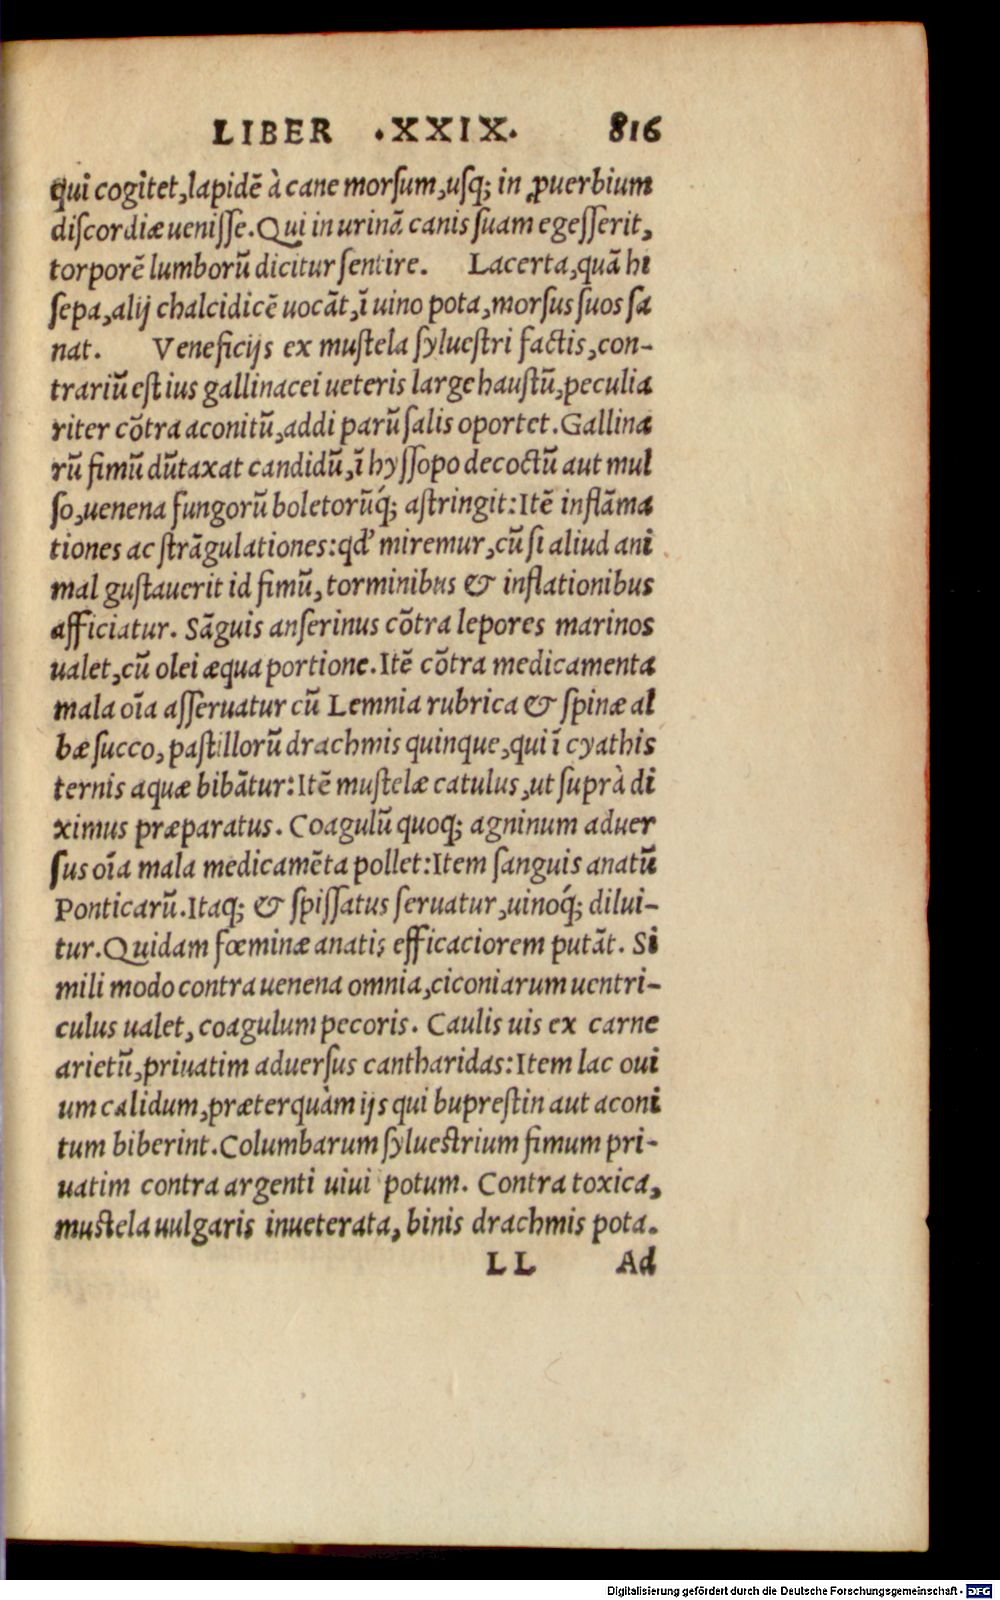 LIBER .XXIX. 816
qui cogitet,lapidē à cane morſum,uſq; in ꝓuerbium
diſcordiæ ueniſſe.Qui in urinā canis ſuam egeſſerit,
torporē lumborū dicitur ſentire. Lacerta,quā hi
ſepa,alij chalcidicē uocāt,ī uino pota,morſus ſuos ſa
nat. Veneficijs ex muſtela ſylueſtri factis,con-
trariū eſt ius gallinacei ueteris large hauſtū,peculia
riter cōtra aconitū,addi parū ſalis oportet.Gallina
rū fimū dūtaxat candidū,ī hyſſopo decoctū aut mul
ſo,uenena fungorū boletorūq́; aſtringit:Itē inflāma
tiones ac ſtrāgulationes:qd' miremur,cū ſi aliud ani
mal guſtauerit id fimū,torminibus & inflationibus
afficiatur. Sāguis anſerinus cōtra lepores marinos
ualet,cū olei æqua portione.Itē cōtra medicamenta
mala oīa aſſeruatur cū Lemnia rubrica & ſpinæ al
bæ ſucco,paſtillorū drachmis quinque,qui ī cyathis
ternis aquæ bibātur:Itē muſtelæ catulus,ut ſuprà di
ximus præparatus. Coagulū quoq; agninum aduer
ſus oīa mala medicamēta pollet:Item ſanguis anatū
Ponticarū.Itaq; & ſpiſſatus ſeruatur,uinoq́; dilui-
tur.Quidam fœminæ anatis efficaciorem putāt. Si
mili modo contra uenena omnia,ciconiarum uentri-
culus ualet,coagulum pecoris. Caulis uis ex carne
arietū,priuatim aduerſus cantharidas:Item lac oui
um calidum,præterquàm ijs qui bupreſtin aut aconi
tum biberint.Columbarum ſylueſtrium fimum pri-
uatim contra argenti uiui potum. Contra toxica,
muſtela uulgaris inueterata,binis drachmis pota.
LL Ad
Digitalisierung gefördert durch die Deutsche Forschungsgemeinschaft - DFG